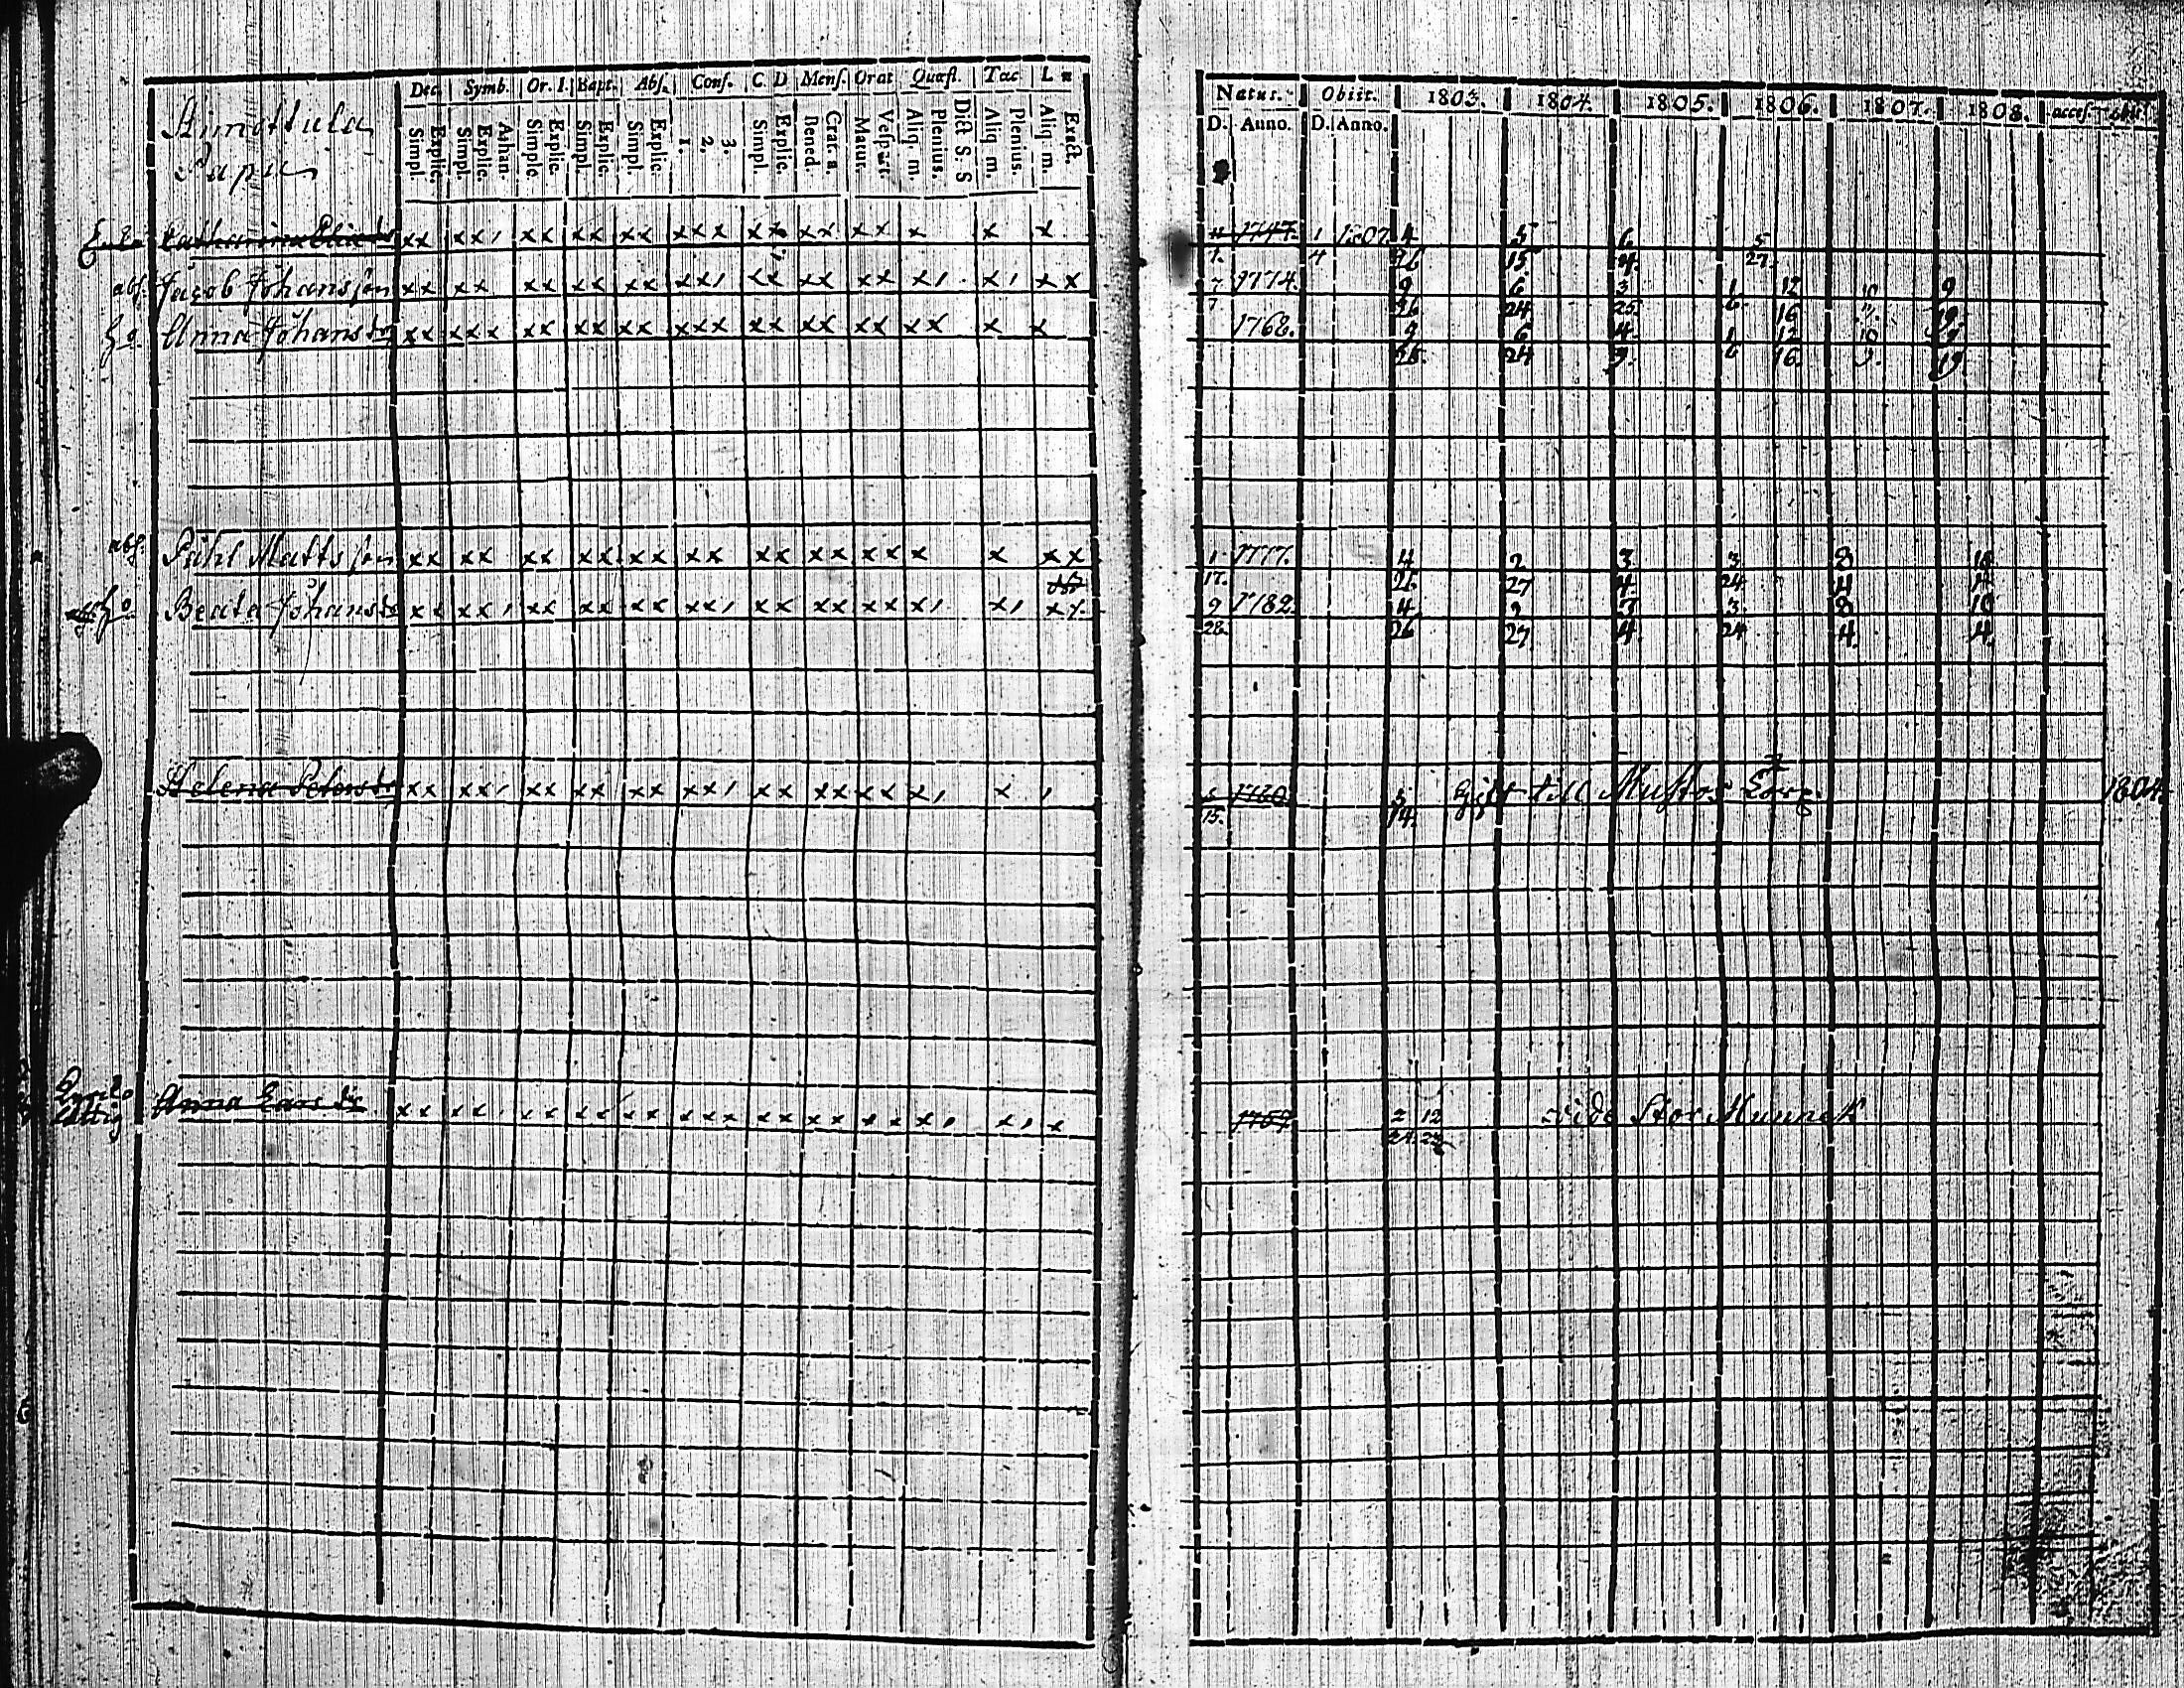 Dec. Symb. Or. I. Bapt. Abs. Conf. C. D Mens. Orat Quæst. Tac L
Simpl. Explic. Simpl. Explic. Athan. Simplic. Explic. Simpl. Explic. Simpl. Explic. 1. 2. 3. Simpl. Explic. Bened. Grat. a. Matur. Vespert. Aliq. m. Plenius. Dict S. S Aliq m. Plenius. Aliq m. Exact.
Papu
Natur. Obiit. 1803. 1804. 1805. 1806. 1807. 1808. access. abit.
D. Anno. D. Anno.
Enka xx xx, xx xx xx xxx xx xx xx x x x 1747. 1 1807 4 5 6 5
4 26 15 4. 27.
abs. Jacob Johansson xx xx xx xx xx xx, xx xx xx x, x, xx 7 1774. 9 6 3 1 12 10 9
7 26 24 25. 6. 16 19.
ho. Anna Johansdr xx xxx xx xx xx xxx xx xx xx xx x x 1768. 9 6 4 1 12 10 9
26. 24 9. 6 16. 9. 19
abs. Påhl Mattsson xx xx xx xx xx xx xx xx xx x x xx 1 1777. 4 2 3 3 8 10
17. 26 27 4. 24 4 4
ho Beata Johansdr xx xx, xx xx xx xx, xx xx xx x, x, xx 9 1782. 4 2 3 3 8 10
28. 26 27 4. 24 4. 4.
Helena Petersdr xx xx, xx xx xx xx, xx xx xx x, x , 1760. gift till 1804.
15. 14.
Anna Larsdr xx xx, xx xx xx xxx xx xx xx x, x, x 2 12 vide Stor Munnek